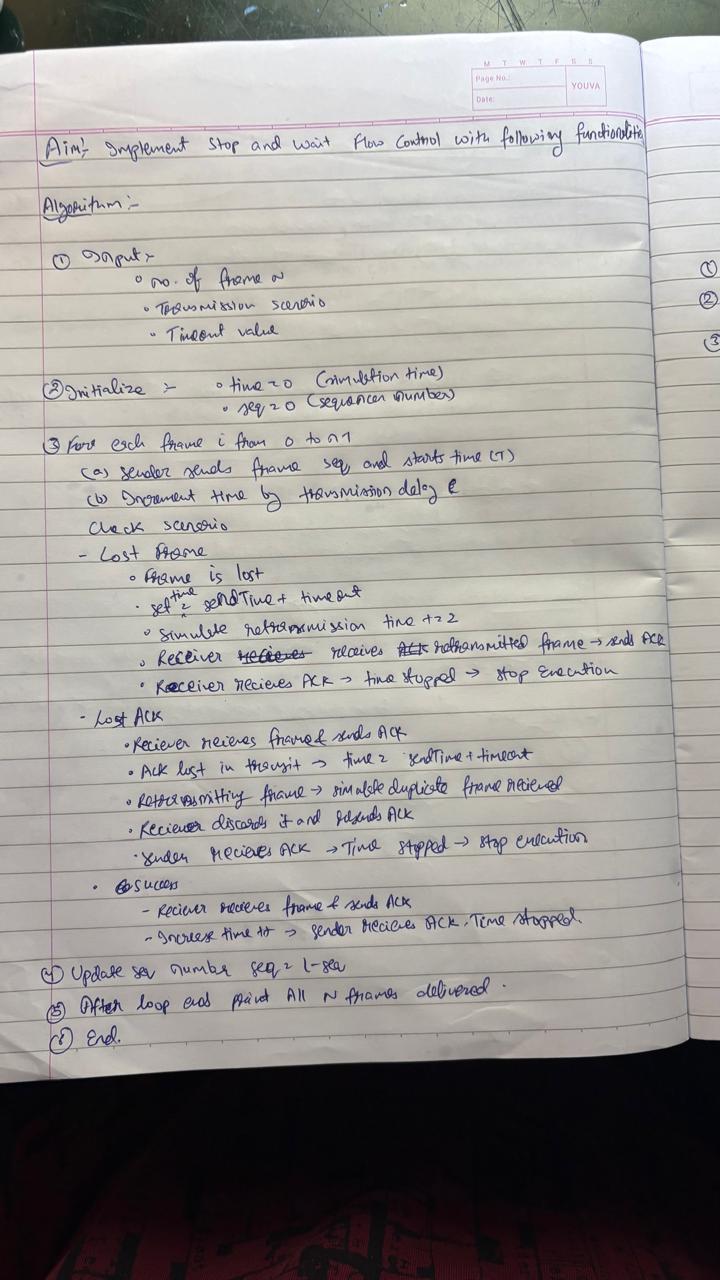 M T W T F S S
Page No.:
YOUVA
Date:
Aim:- Implement Stop and wait Flow Control with following functionalitie
Algorithm :-
① Input :-
◦ no. of frame N
◦ Transmission scenario
◦ Timeout value
② Initialize :- ◦ time = 0 (simulation time)
◦ seq = 0 (sequencer number)
③ For each frame i from 0 to n-1
(a) Sender sends frame seq and starts time (T)
(b) Increment time by transmission delay
Check scenario
- Lost Frame
◦ Frame is lost
◦ set time = sendTime + timeout
◦ Simulate retransmission time += 2
◦ Receiver receives retransmitted frame → sends ACK
◦ Receiver recieves ACK → time stopped → stop execution
- Lost ACK
• Reciever recieves frame & sends ACK
• Ack lost in transit → time = sendTime + timeout
• Retransmitting frame → simulate duplicate frame recieved
• Reciever discards it and resends ACK
• Sender recieves ACK → Time stopped → stop execution
• Success
- Reciever recieves frame & sends ACK
- Increase time ++ → sender recieves ACK, Time stopped.
④ Update seq number seq = 1-seq
⑤ After loop ends print All N frames delivered.
⑥ End.
①
②
③